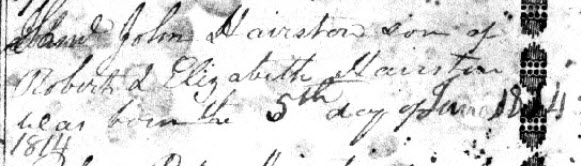 Saml John Hairston son of
Robert & Elizabeth Hairston
was born the 5th day of June 1814
1814